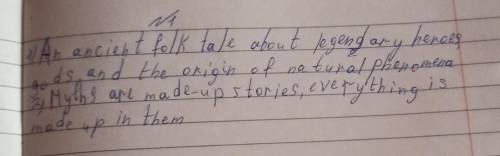 №1
1) An ancient folk tale about legendary heroes,
gods, and the origin of natural phenomena
2) Myths are made-up stories, everything is
made up in them